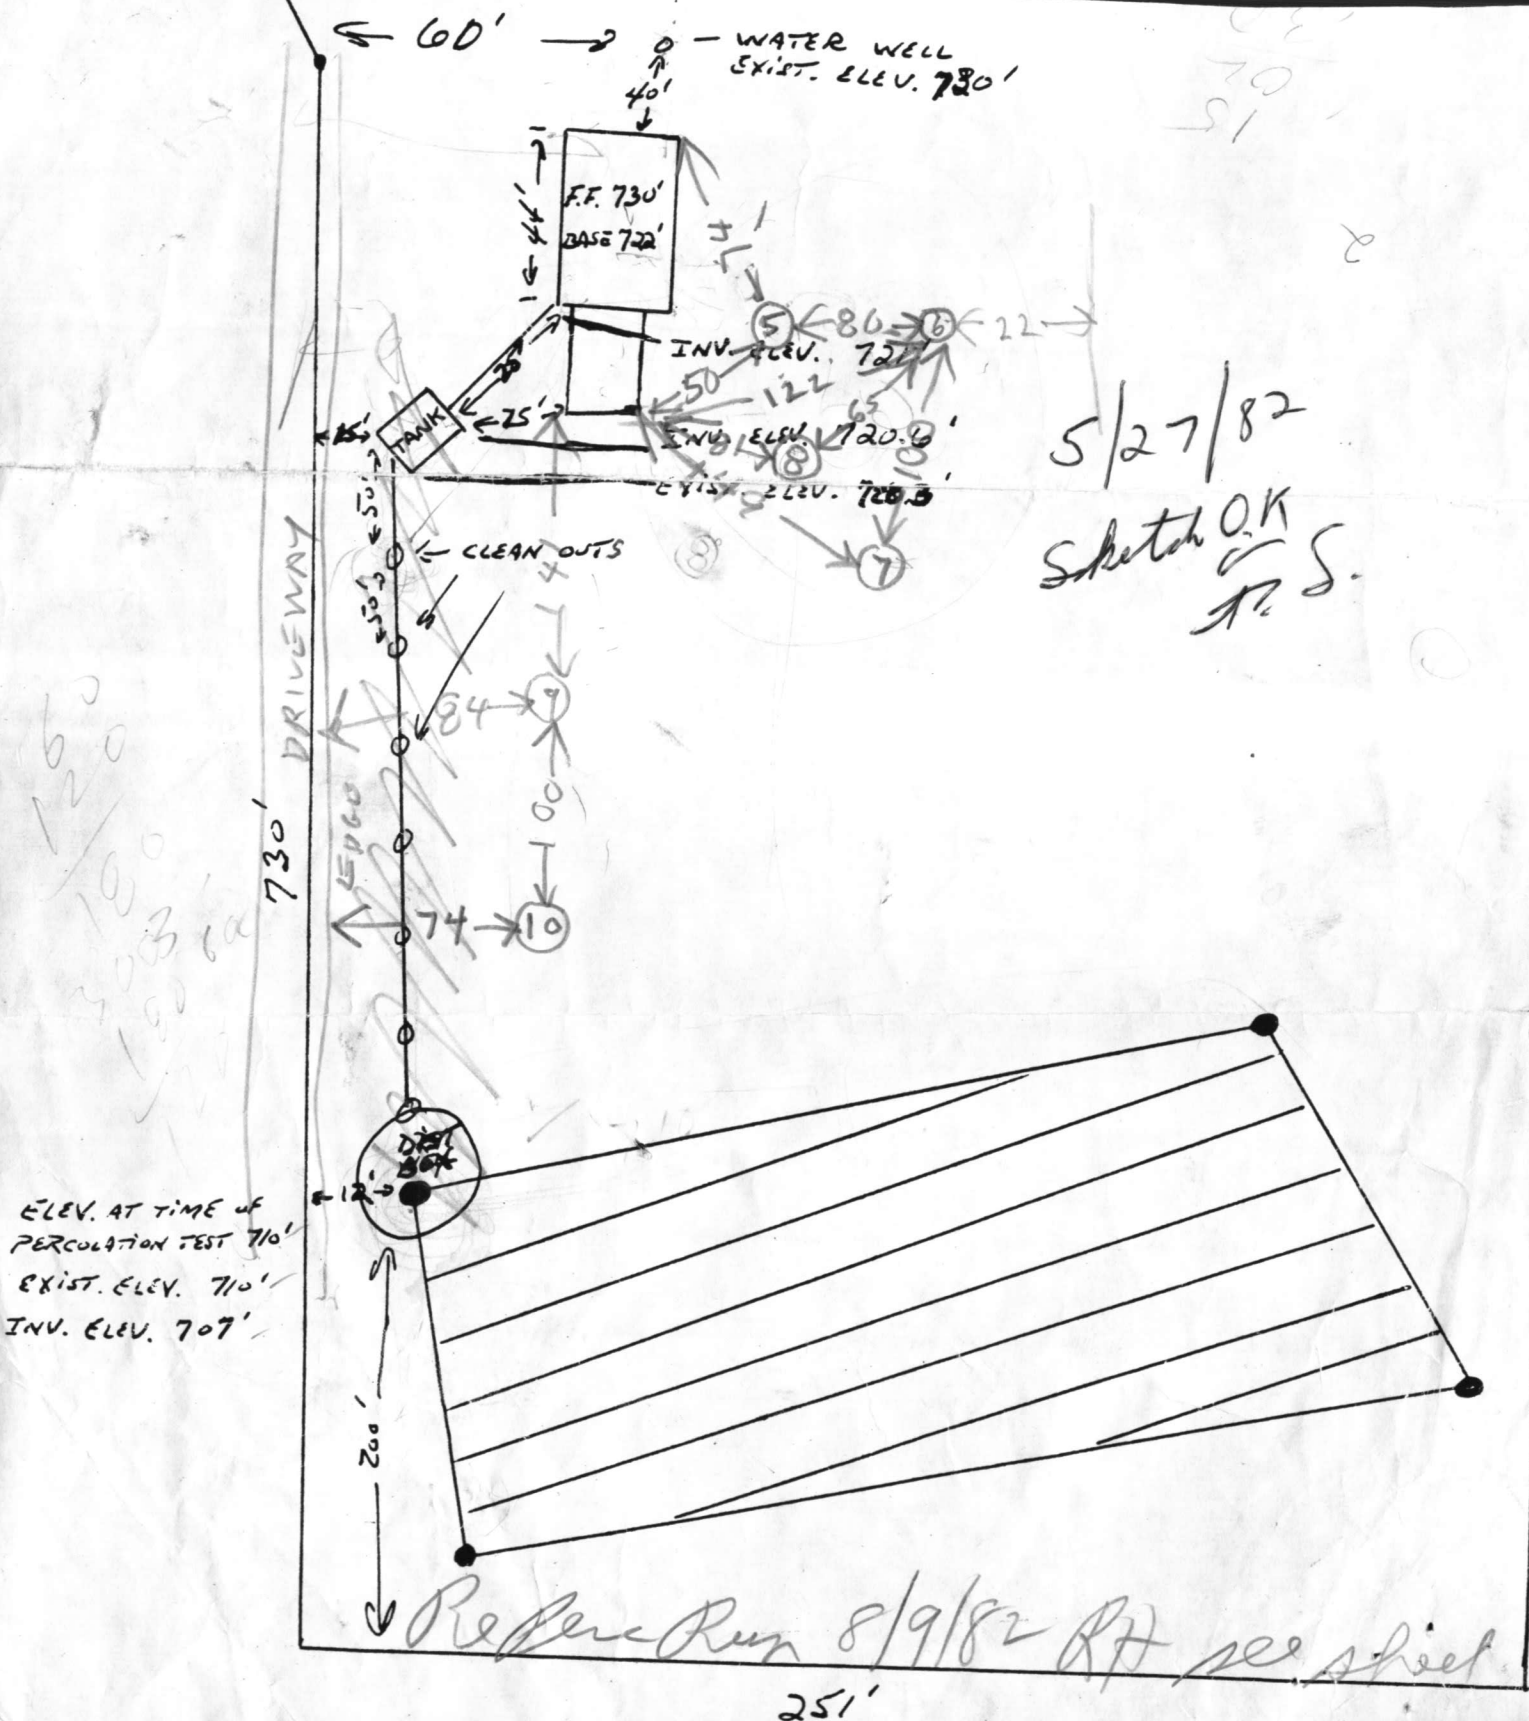 60'
WATER WELL
EXIST. ELEV. 730'
40'
44'
F.F. 730'
BASE 722'
5
80
6
22
INV. ELEV. 721'
50
122
65
TANK
15'
25'
INV. ELEV. 720.6'
8
81
EXIST. ELEV.
100
5/27/82
Sketch O.K
50'
CLEAN OUTS
7
8
50'
DRIVEWAY
84
9
147
100
EDGE
730'
74
10
DIST
BOX
12'
ELEV. AT TIME of
PERCOLATION TEST 710'
EXIST. ELEV. 710'
INV. ELEV. 707'
200'
Reperc Run 8/9/82 RH see sheet
251'